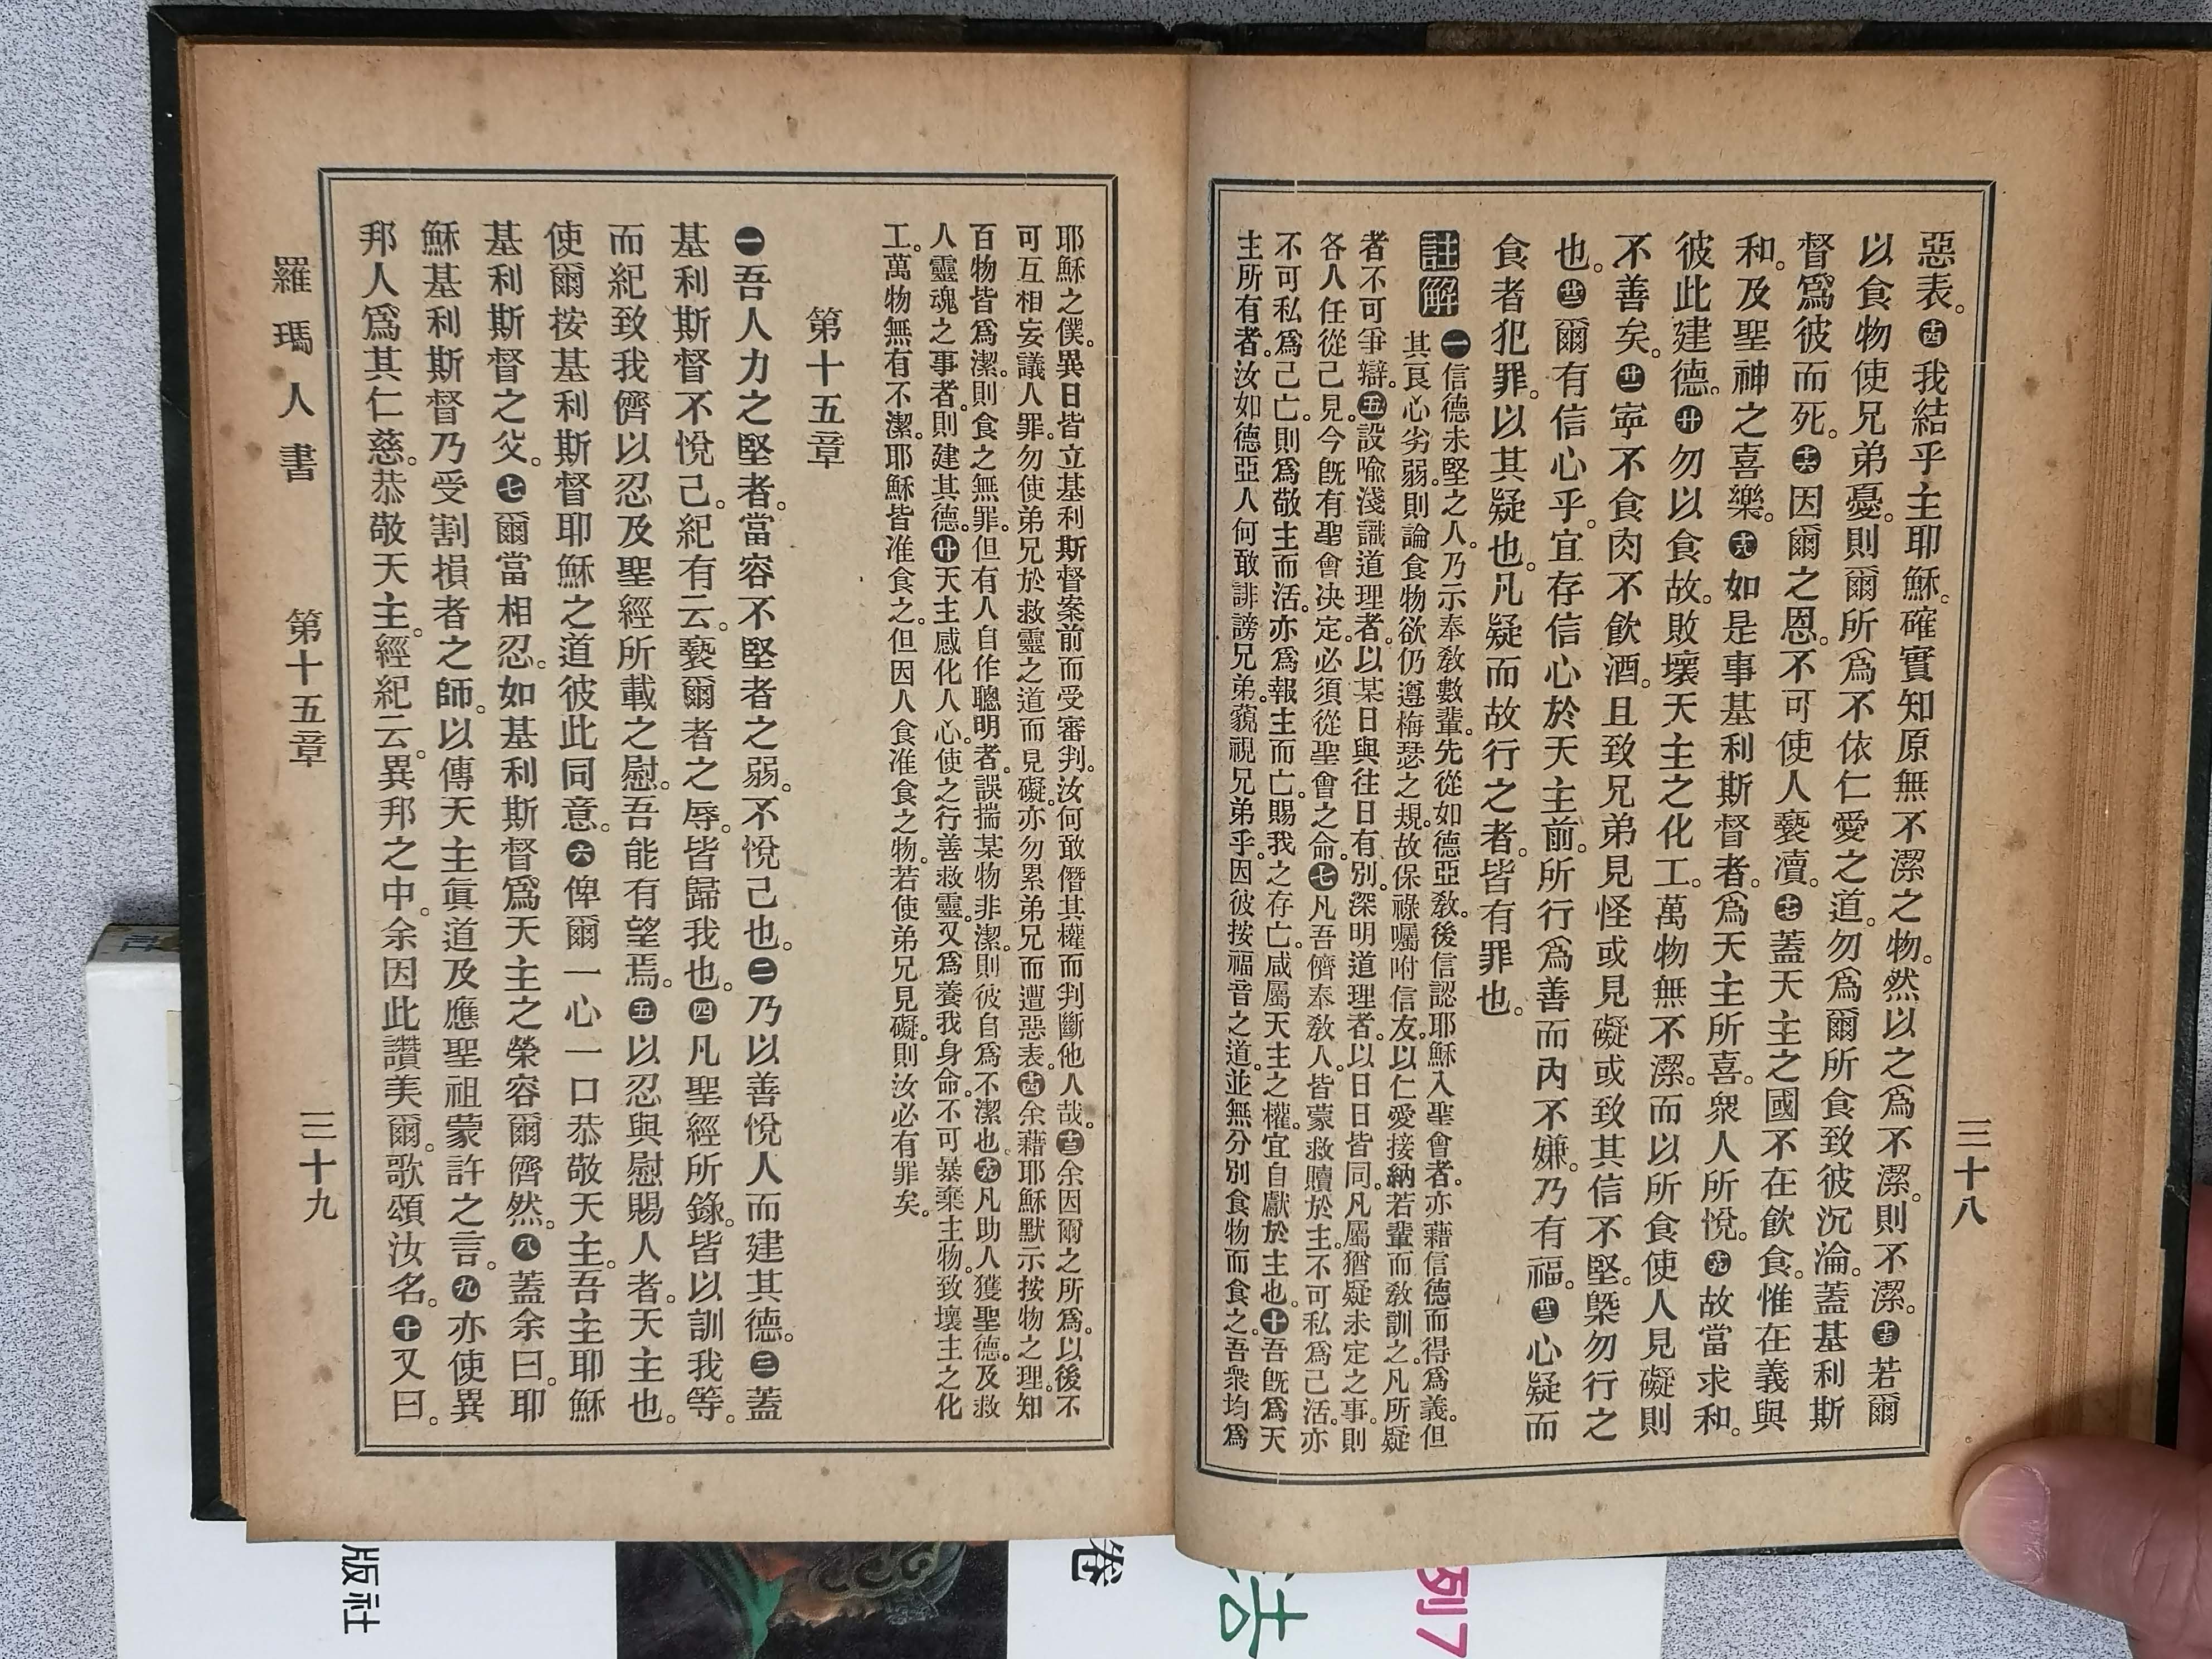 三十八
惡表。㊉四我結乎主耶穌。確實知原無不潔之物。然以之爲不潔。則不潔。㊉五若爾
以食物使兄弟憂。則爾所爲不依仁愛之道。勿爲爾所食致彼沉淪。蓋基利斯
督爲彼而死。㊉六因爾之恩。不可使人褻瀆。㊉七蓋天主之國不在飲食。惟在義與
和。及聖神之喜樂。㊉八如是事基利斯督者。爲天主所喜。衆人所悅。㊉九故當求和。
彼此建德。㊀廿勿以食故。敗壞天主之化工。萬物無不潔。而以所食使人見礙則
不善矣。廿一寧不食肉不飲酒。且致兄弟見怪或見礙或致其信不堅。槩勿行之
也。廿二爾有信心乎。宜存信心於天主前。所行爲善而內不嫌。乃有福。廿三心疑而
食者犯罪。以其疑也。凡疑而故行之者。皆有罪也。
註解 一信德未堅之人。乃示奉敎數輩。先從如德亞敎。後信認耶穌入聖會者。亦藉信德而得爲義。但
其良心劣弱。則論食物欲仍遵梅瑟之規。故保祿囑咐信友。以仁愛接納若輩而敎訓之。凡所疑
者不可爭辯。五設喻淺識道理者。以某日與往日有別。深明道理者。以日日皆同。凡屬猶疑未定之事。則
各人任從己見。今旣有聖會决定。必須從聖會之命。七凡吾儕奉敎人。皆蒙救贖於主。不可私爲己活。亦
不可私爲己亡。則爲敬主而活。亦爲報主而亡。賜我之存亡。咸屬天主之權。宜自獻於主也。十吾旣爲天
主所有者。汝如德亞人何敢誹謗兄弟。藐視兄弟乎。因彼按福音之道。並無分別食物而食之。吾衆均爲
耶穌之僕。異日皆立基利斯督案前而受審判。汝何敢僭其權而判斷他人哉。十三余因爾之所爲。以後不
可互相妄議人罪。勿使弟兄於救靈之道而見礙。亦勿累弟兄而遭惡表。十四余藉耶穌默示按物之理。知
百物皆爲潔。則食之無罪。但有人自作聰明者。誤揣某物非潔。則彼自爲不潔也。十九凡助人獲聖德。及救
人靈魂之事者。則建其德。廿天主感化人心。使之行善救靈。又爲養我身命。不可暴棄主物。致壞主之化
工。萬物無有不潔。耶穌皆准食之。但因人食准食之物。若使弟兄見礙。則汝必有罪矣。
第十五章
一吾人力之堅者。當容不堅者之弱。不悅己也。二乃以善悅人而建其德。三蓋
基利斯督不悅己。紀有云。褻爾者之辱。皆歸我也。四凡聖經所錄。皆以訓我等。
而紀致我儕以忍及聖經所載之慰。吾能有望焉。五以忍與慰賜人者。天主也。
使爾按基利斯督耶穌之道彼此同意。六俾爾一心一口恭敬天主。吾主耶穌
基利斯督之父。七爾當相忍。如基利斯督爲天主之榮容爾儕然。八蓋余曰。耶
穌基利斯督乃受割損者之師。以傳天主眞道及應聖祖蒙許之言。九亦使異
邦人爲其仁慈。恭敬天主。經紀云。異邦之中。余因此讚美爾。歌頌汝名。十又曰。
羅瑪人書 第十五章 三十九
版社
卷
列7